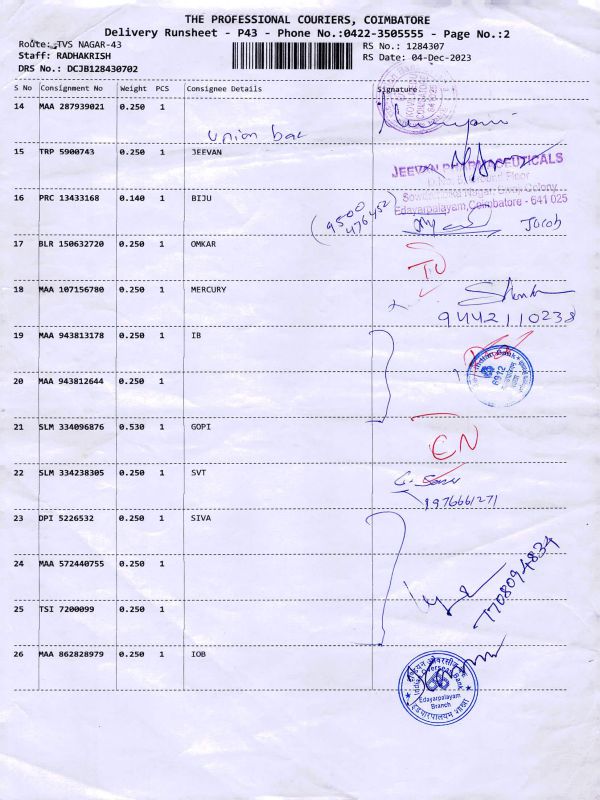 THE PROFESSIONAL COURIERS, COIMBATORE
Delivery Runsheet - P43 - Phone No.:0422-3505555 - Page No.:2
Route: TVS NAGAR-43 RS No.: 1284307
Staff: RADHAKRISH RS Date: 04-Dec-2023
DRS No.: DCJB128430702
S No Consignment No Weight PCS Consignee Details Signature
14 MAA 287939021 0.250 1
union bac
15 TRP 5900743 0.250 1 JEEVAN
JEEVAN PHARMACEUTICALS
Floor
Colony
Edayarpalayam, Coimbatore - 641 025
16 PRC 13433168 0.140 1 BIJU
(9500
476452) Jacob
17 BLR 150632720 0.250 1 OMKAR
18 MAA 107156780 0.250 1 MERCURY
9442110238
19 MAA 943813178 0.250 1 IB
20 MAA 943812644 0.250 1
21 SLM 334096876 0.530 1 GOPI
CN
22 SLM 334238305 0.250 1 SVT
23 DPI 5226532 0.250 1 SIVA
24 MAA 572440755 0.250 1
7708094834
25 TSI 7200099 0.250 1
26 MAA 862828979 0.250 1 IOB
Indian Overseas Bank
Edayarpalayam
Branch